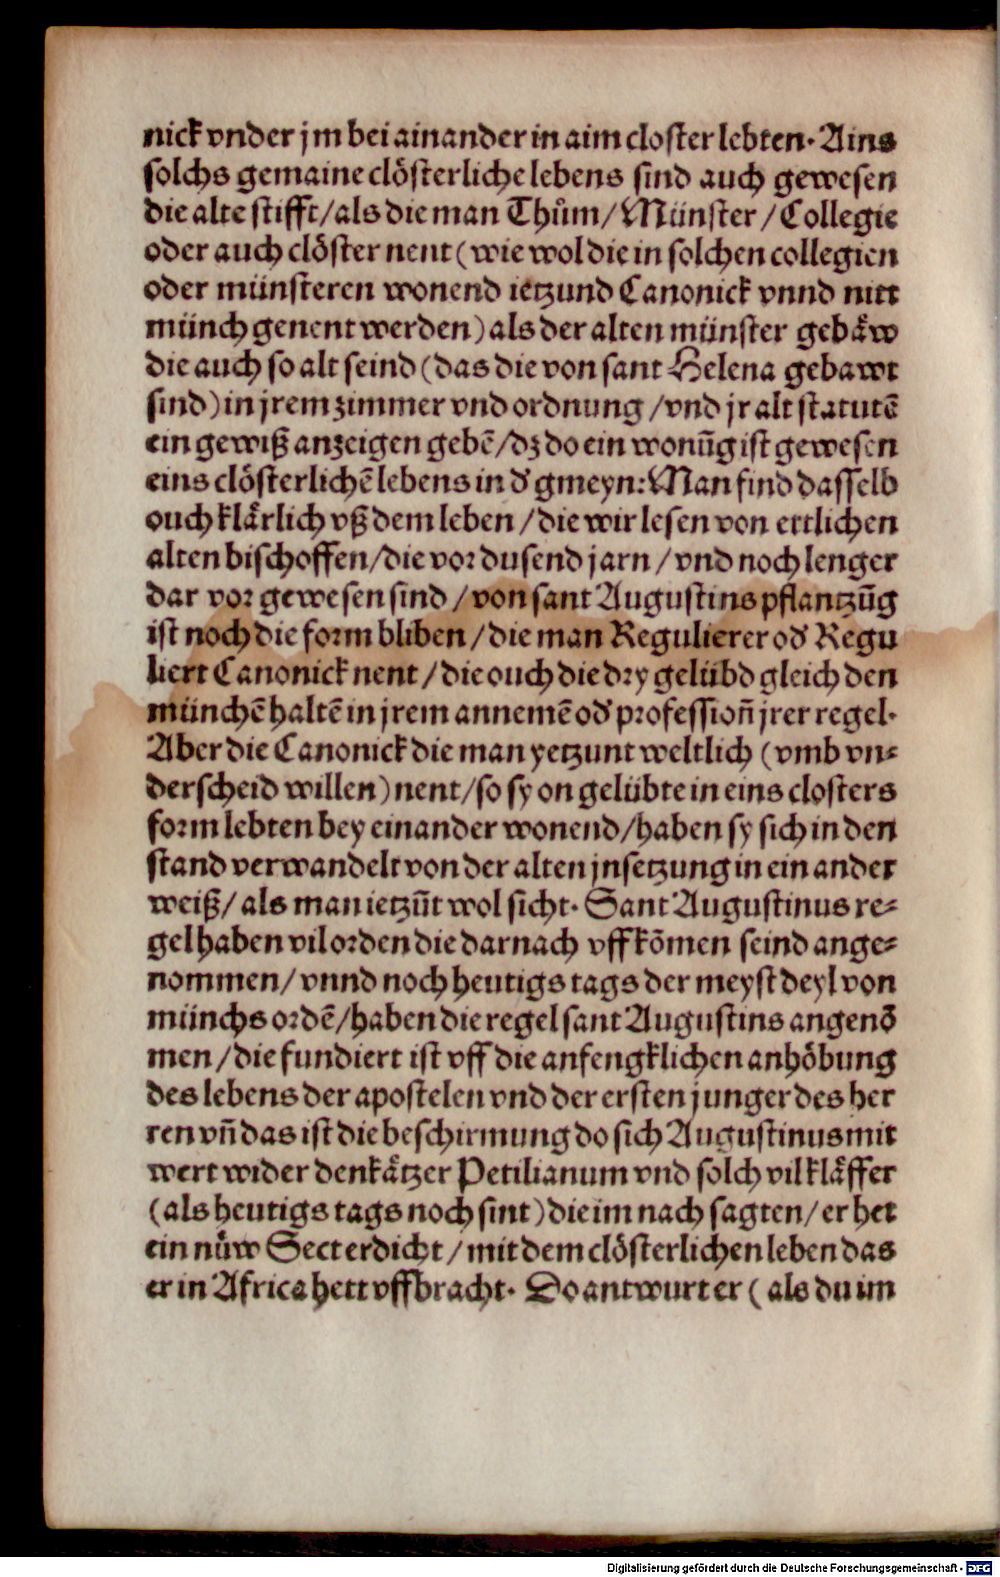 nick vnder jm bei ainander in aim closter lebten. Ains
solchs gemaine clösterliche lebens sind auch gewesen
die alte stifft/als die man Thům/Münster/Collegie
oder auch clöster nent (wie wol die in solchen collegien
oder münsteren wonend ietzund Canonick vnnd nitt
münch genent werden) als der alten münster gebäw
die auch so alt seind (das die von sant Helena gebawt
sind) in jrem zimmer vnd ordnung/vnd jr alt statutē
ein gewiß anzeigen gebē/dz do ein wonūg ist gewesen
eins clösterlichē lebens in d' gmeyn: Man find dasselb
ouch klärlich vß dem leben/die wir lesen von ettlichen
alten bischoffen/die vor dusend jarn/vnd noch lenger
dar vor gewesen sind/von sant Augustins pflantzūg
ist noch die form bliben/die man Regulierer od' Regu
liert Canonick nent/die ouch die dry gelübd gleich den
münchē haltē in jrem annemē od' professioñ jrer regel.
Aber die Canonick die man yetzunt weltlich (vmb vn-
derscheid willen) nent/so sy on gelübte in eins closters
form lebten bey einander wonend/haben sy sich in den
stand verwandelt von der alten jnsetzung in ein ander
weiß/als man ietzūt wol sicht. Sant Augustinus re-
gel haben vil orden die darnach vff kōmen seind ange-
nommen/vnnd noch heutigs tags der meyst deyl von
münchs ordē/haben die regel sant Augustins angenō
men/die fundiert ist vff die anfengklichen anhöbung
des lebens der apostelen vnd der ersten junger des her
ren vñ das ist die beschirmung do sich Augustinus mit
wert wider den kätzer Petilianum vnd solch vil kläffer
(als heutigs tags noch sint) die im nach sagten/er het
ein nüw Sect erdicht/mit dem clösterlichen leben das
er in Africa hett vffbracht. Do antwurt er (als du im
Digitalisierung gefördert durch die Deutsche Forschungsgemeinschaft - DFG